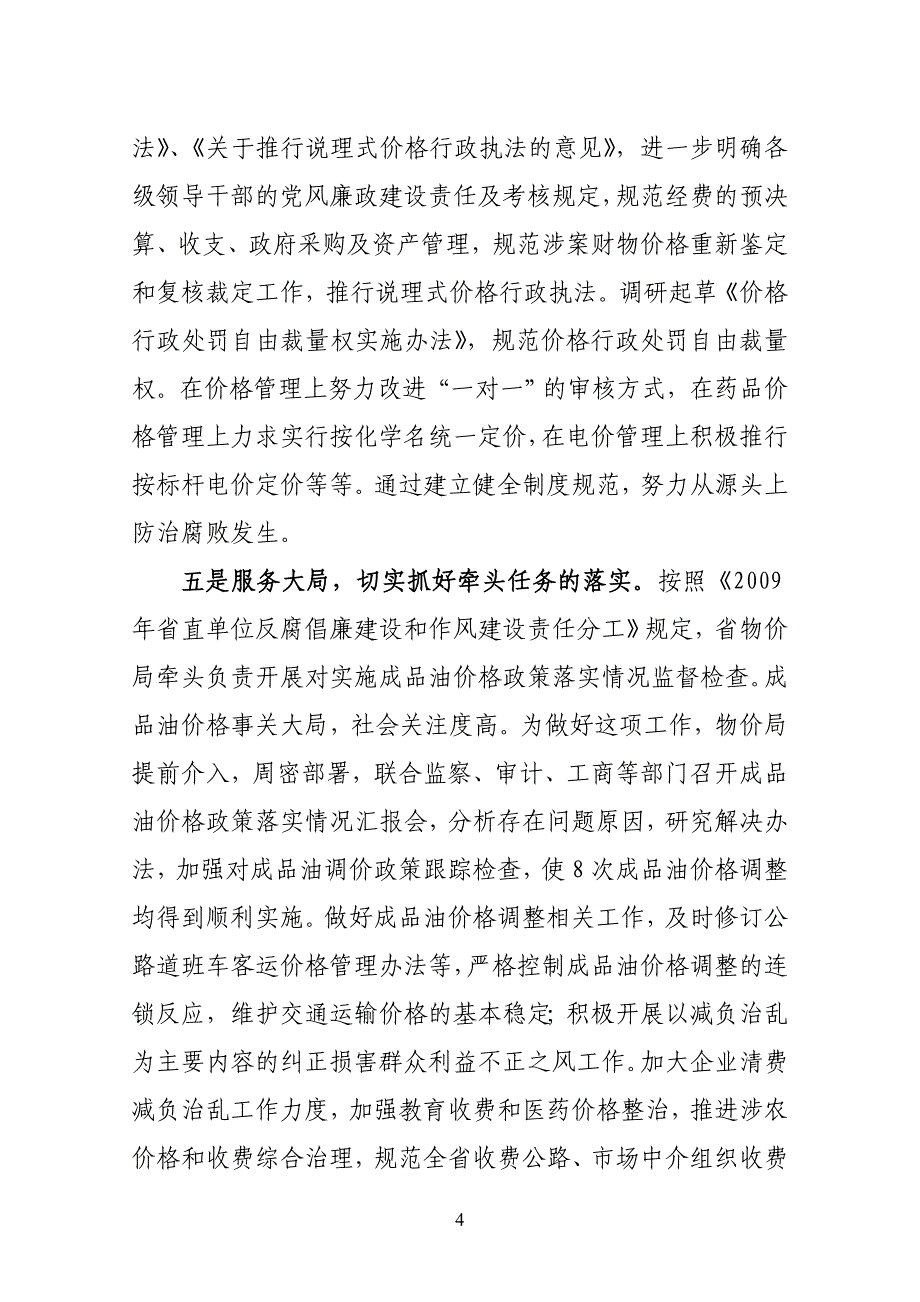 法》、《关于推行说理式价格行政执法的意见》，进一步明确各
级领导干部的党风廉政建设责任及考核规定，规范经费的预决
算、收支、政府采购及资产管理，规范涉案财物价格重新鉴定
和复核裁定工作，推行说理式价格行政执法。调研起草《价格
行政处罚自由裁量权实施办法》，规范价格行政处罚自由裁量
权。在价格管理上努力改进“一对一”的审核方式，在药品价
格管理上力求实行按化学名统一定价，在电价管理上积极推行
按标杆电价定价等等。通过建立健全制度规范，努力从源头上
防治腐败发生。
五是服务大局，切实抓好牵头任务的落实。按照《2009
年省直单位反腐倡廉建设和作风建设责任分工》规定，省物价
局牵头负责开展对实施成品油价格政策落实情况监督检查。成
品油价格事关大局，社会关注度高。为做好这项工作，物价局
提前介入，周密部署，联合监察、审计、工商等部门召开成品
油价格政策落实情况汇报会，分析存在问题原因，研究解决办
法，加强对成品油调价政策跟踪检查，使 8 次成品油价格调整
均得到顺利实施。做好成品油价格调整相关工作，及时修订公
路道班车客运价格管理办法等，严格控制成品油价格调整的连
锁反应，维护交通运输价格的基本稳定；积极开展以减负治乱
为主要内容的纠正损害群众利益不正之风工作。加大企业清费
减负治乱工作力度，加强教育收费和医药价格整治，推进涉农
价格和收费综合治理，规范全省收费公路、市场中介组织收费
4